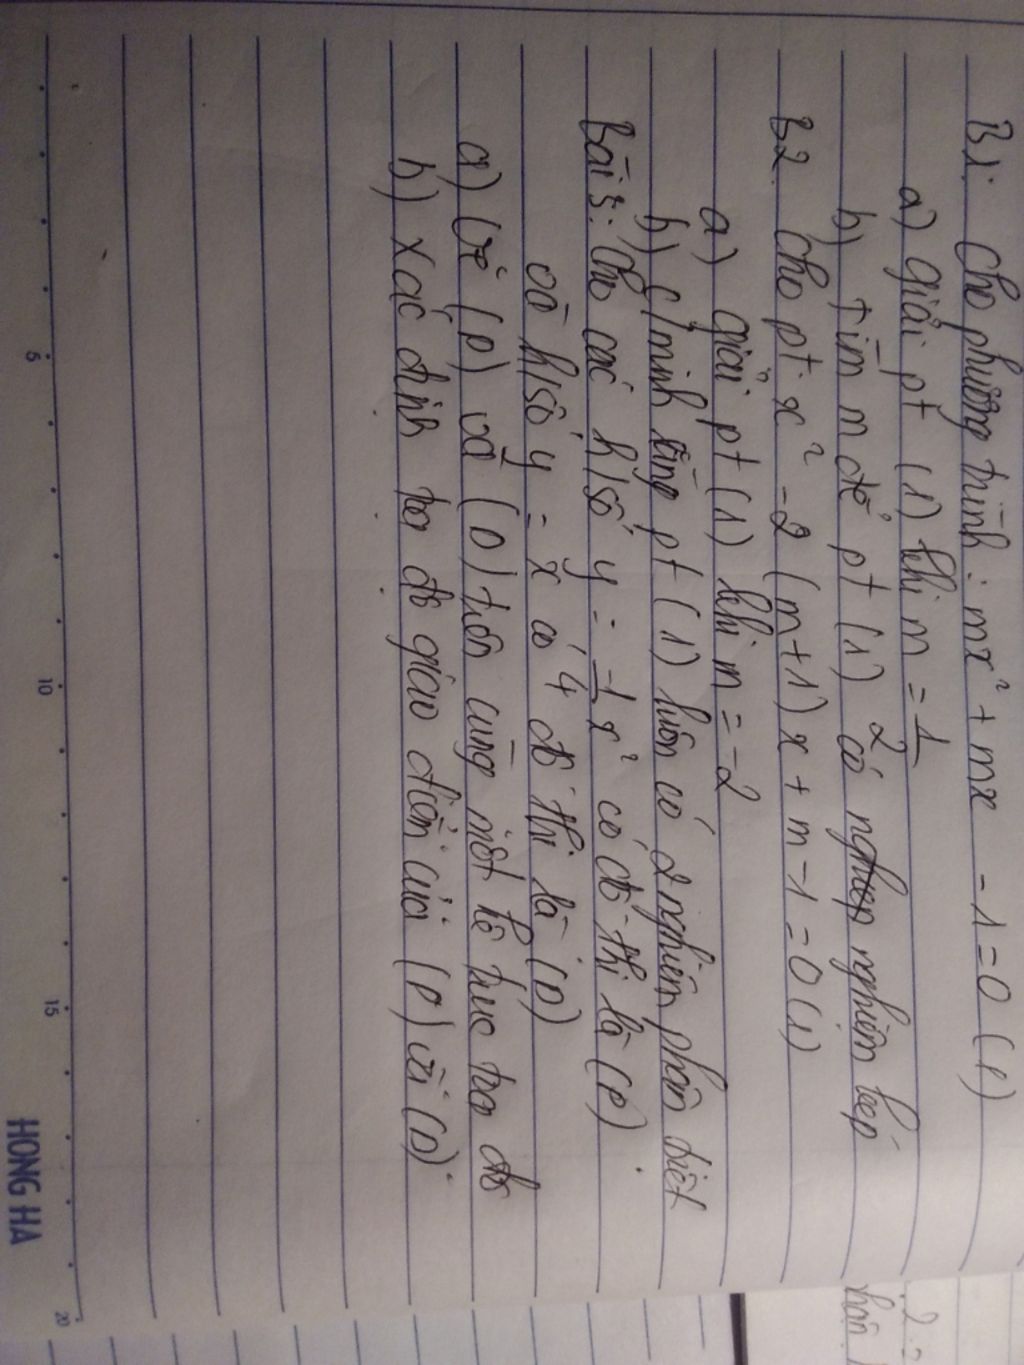 B1. Cho phương trình: mx² + mx - 1 = 0 (1)
a) giải pt (1) khi m = 1/2
b) Tìm m để pt (1) có nghiệm kép
B2. Cho pt. x² - 2 (m+1)x + m - 1 = 0 (1)
a) giải pt (1) khi m = -2
b) c/minh rằng pt (1) luôn có 2 nghiệm phân biệt
Bài 3: Cho các h/số y = -1/4 x² có đồ thị là (P)
và h/số y = x có đồ thị là (D)
a) Vẽ (P) và (D) trên cùng một hệ trục tọa độ
b) Xác định tọa độ giao điểm của (P) với (D).
5
10
15
20
HONG HA